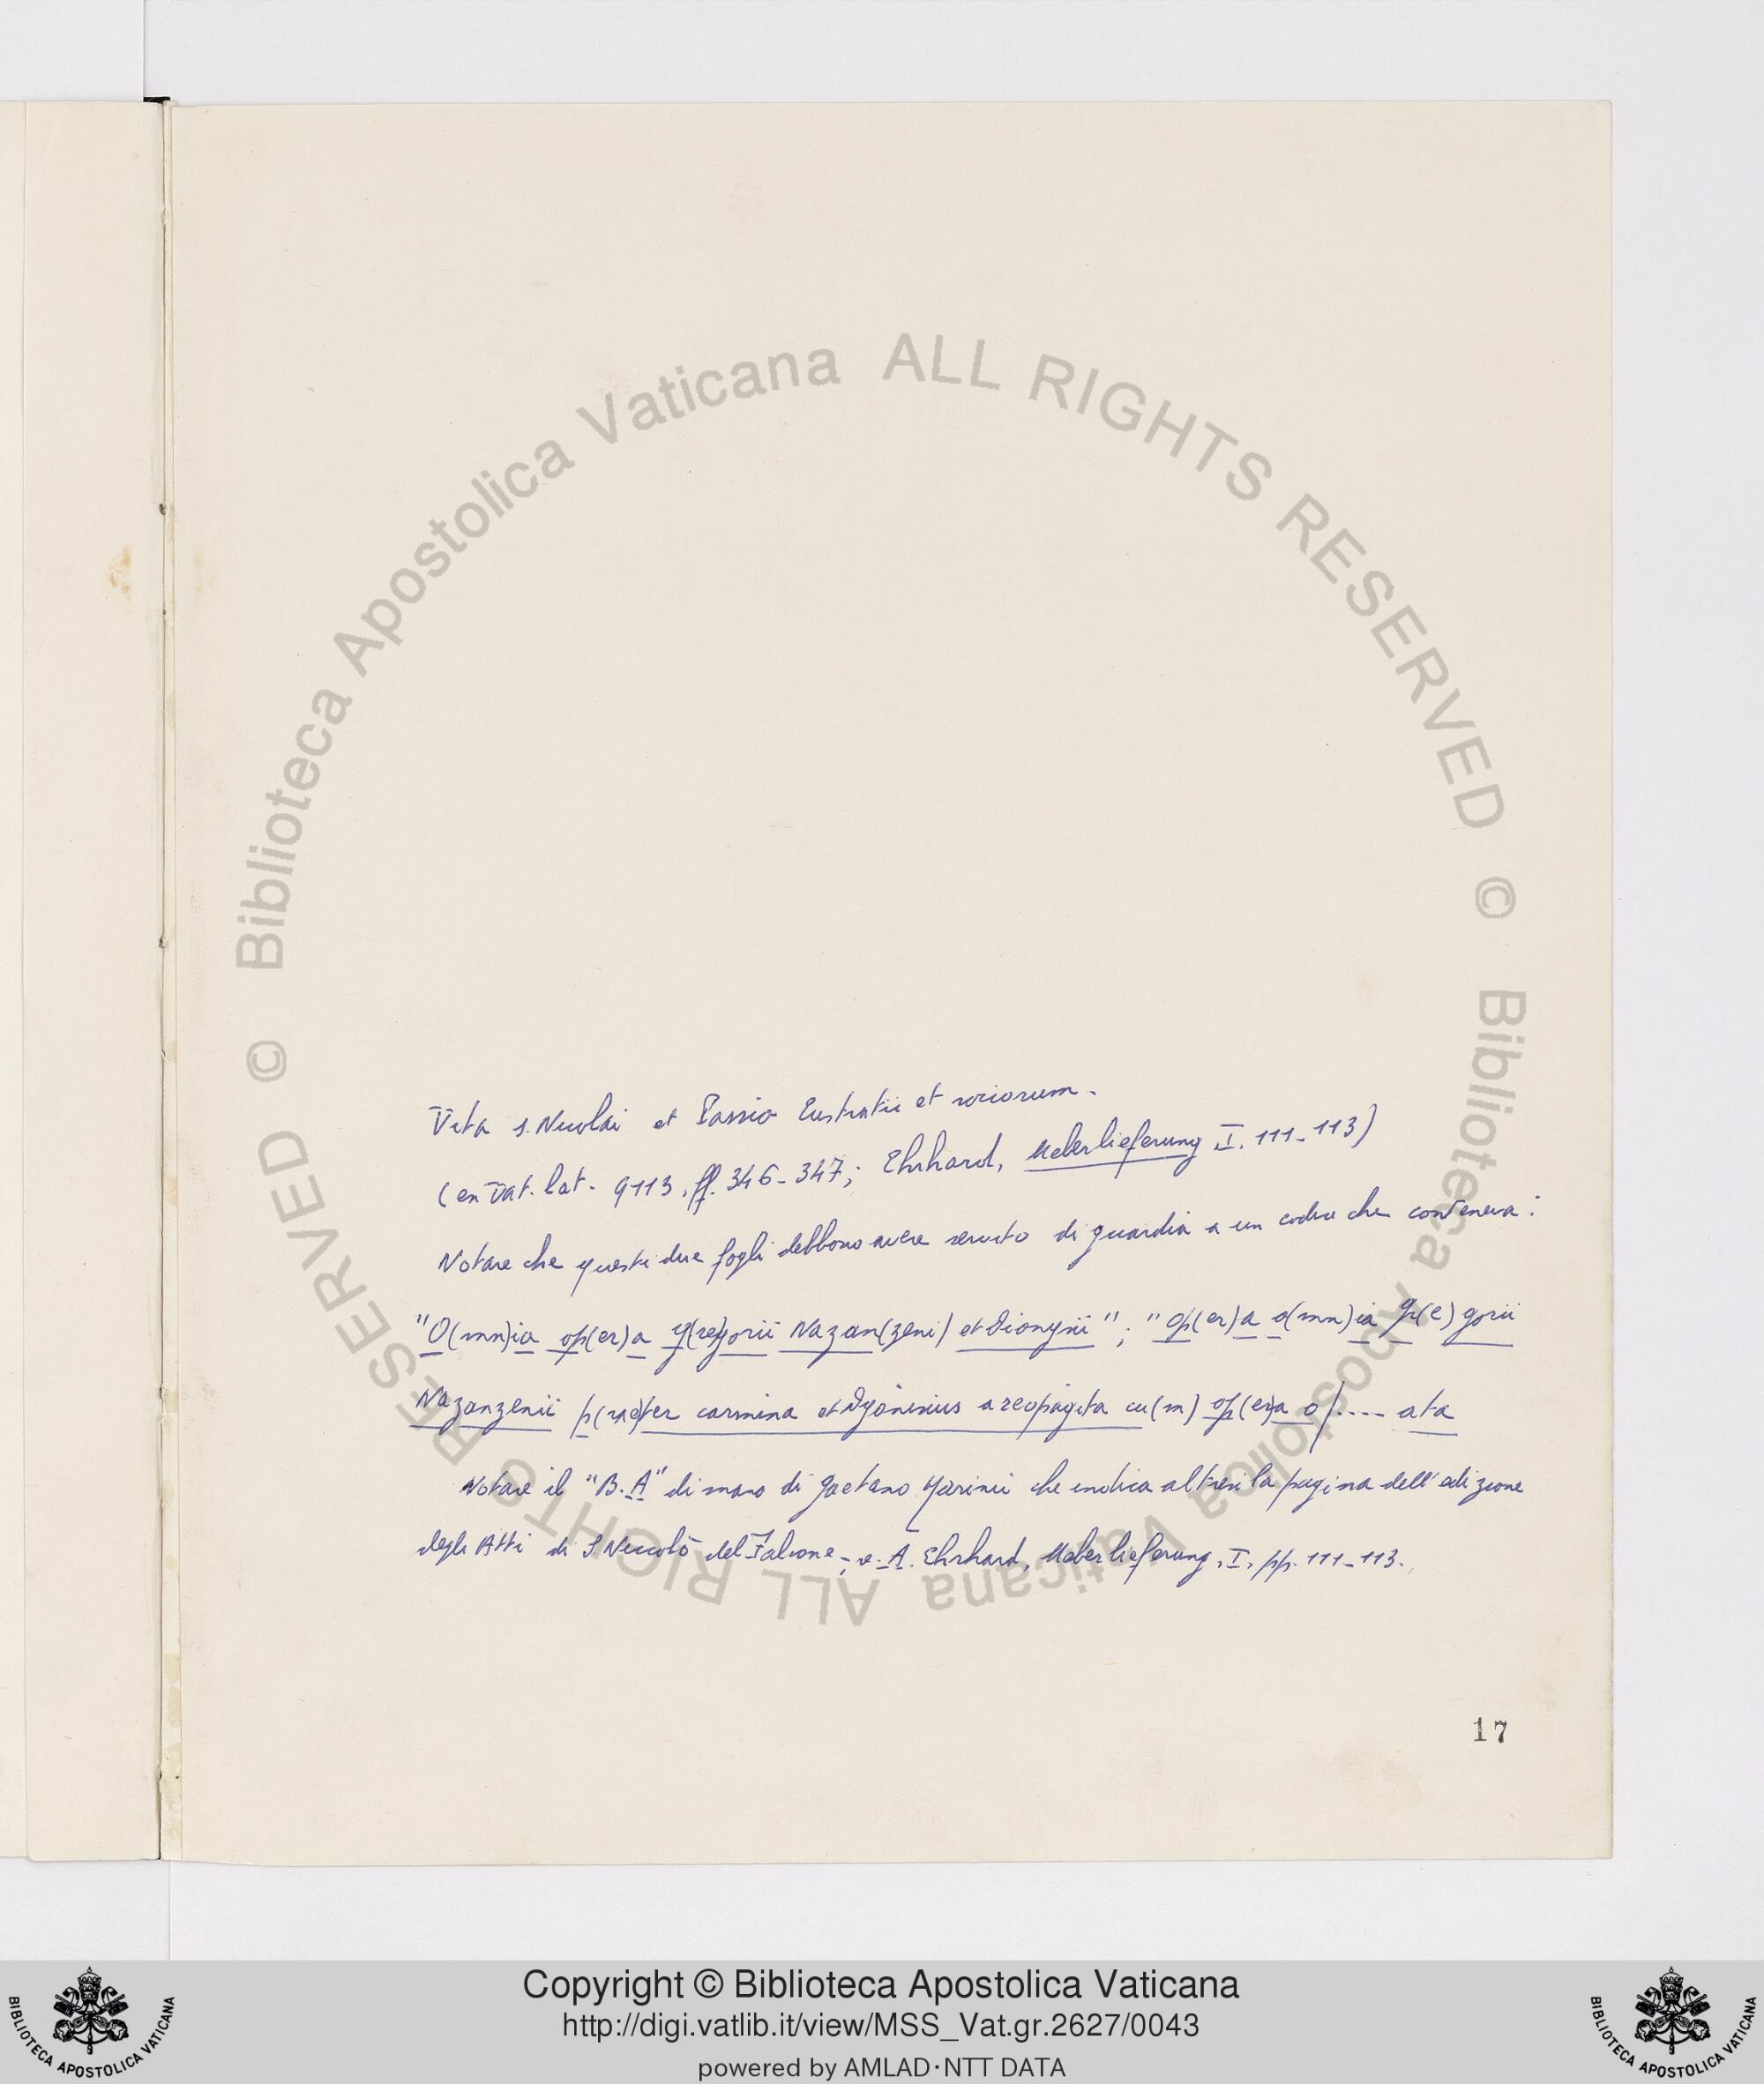 Vita s. Nicolai et Passio Eustratii et sociorum.
(ex Vat. lat. 9113, ff. 346-347; Ehrhard, Ueberlieferung I. 111-113)
Notare che questi due fogli debbono avere servito di guardia a un codice che conteneva:
"O(mn)ia op(er)a G(re)gorii Nazan(zeni) et Dionysii"; "Op(er)a o(mn)ia Gr(e)gorii
Nazanzenii p(rae)ter carmina et Dyonisius areopagita cu(m) op(er)a o/.... ata
Notare il "B. A" di mano di Gaetano Marini che indica altresì la pagina dell'edizione
degli Atti di S. Niccolò del Falcone; v. A. Ehrhard, Ueberlieferung, I, pp. 111-113.
17
© Biblioteca Apostolica Vaticana ALL RIGHTS RESERVED
© Biblioteca Apostolica Vaticana ALL RIGHTS RESERVED
Copyright © Biblioteca Apostolica Vaticana
http://digi.vatlib.it/view/MSS_Vat.gr.2627/0043
powered by AMLAD·NTT DATA
BIBLIOTECA APOSTOLICA VATICANA
BIBLIOTECA APOSTOLICA VATICANA